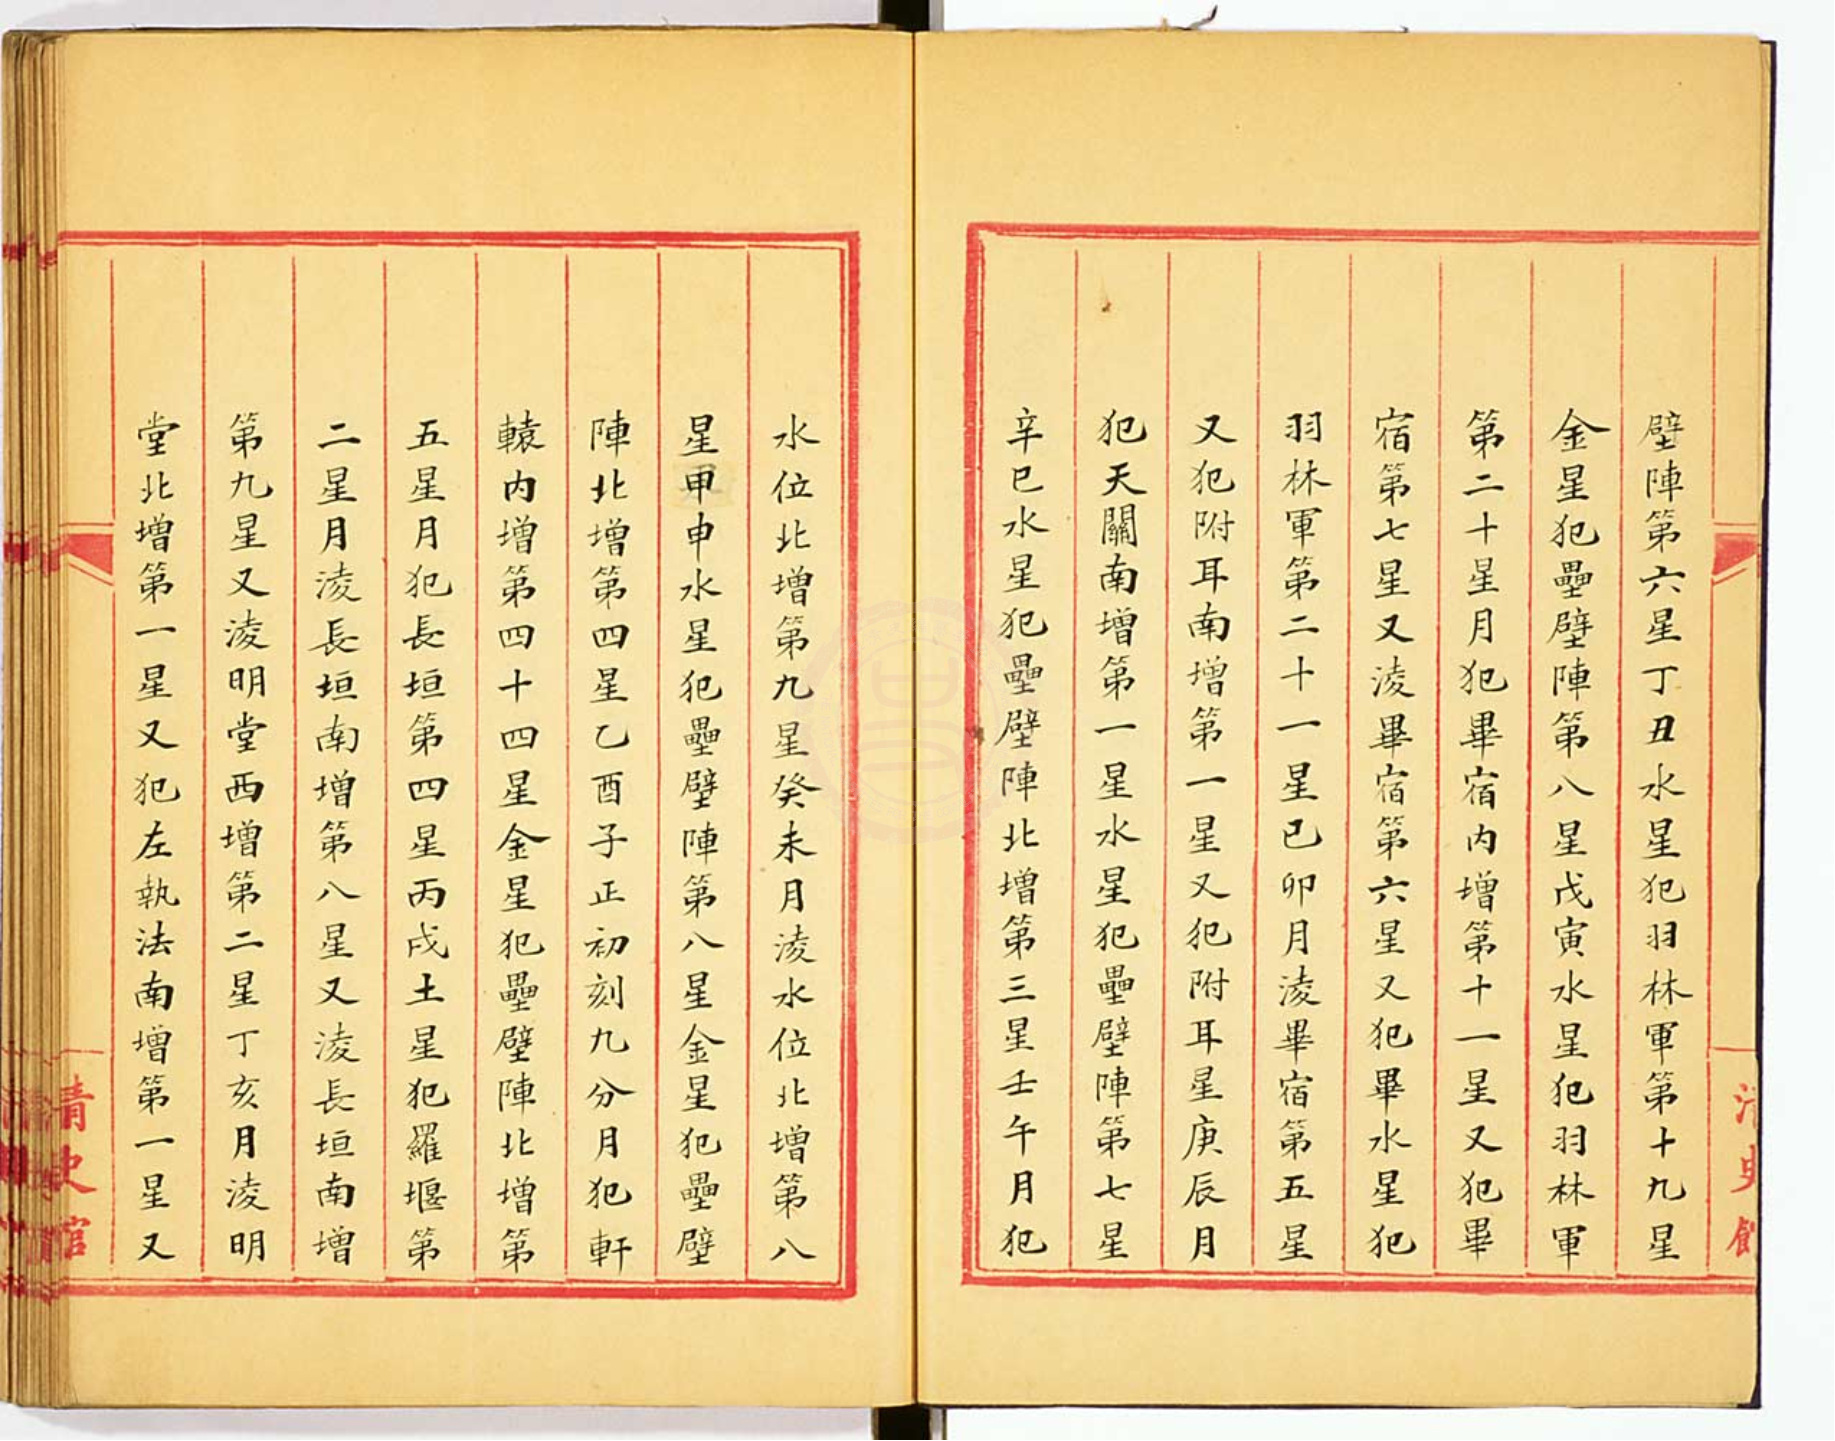 壁陣第六星丁丑水星犯羽林軍第十九星
金星犯壘壁陣第八星戊寅水星犯羽林軍
第二十星月犯畢宿內增第十一星又犯畢
宿第七星又淩畢宿第六星又犯畢水星犯
羽林軍第二十一星己卯月淩畢宿第五星
又犯附耳南增第一星又犯附耳星庚辰月
犯天關南增第一星水星犯壘壁陣第七星
辛巳水星犯壘壁陣北增第三星壬午月犯
水位北增第九星癸未月淩水位北增第八
星甲申水星犯壘壁陣第八星金星犯壘壁
陣北增第四星乙酉子正初刻九分月犯軒
轅內增第四十四星金星犯壘壁陣北增第
五星月犯長垣第四星丙戌土星犯羅堰第
二星月淩長垣南增第八星又淩長垣南增
第九星又淩明堂西增第二星丁亥月淩明
堂北增第一星又犯左執法南增第一星又
清史館